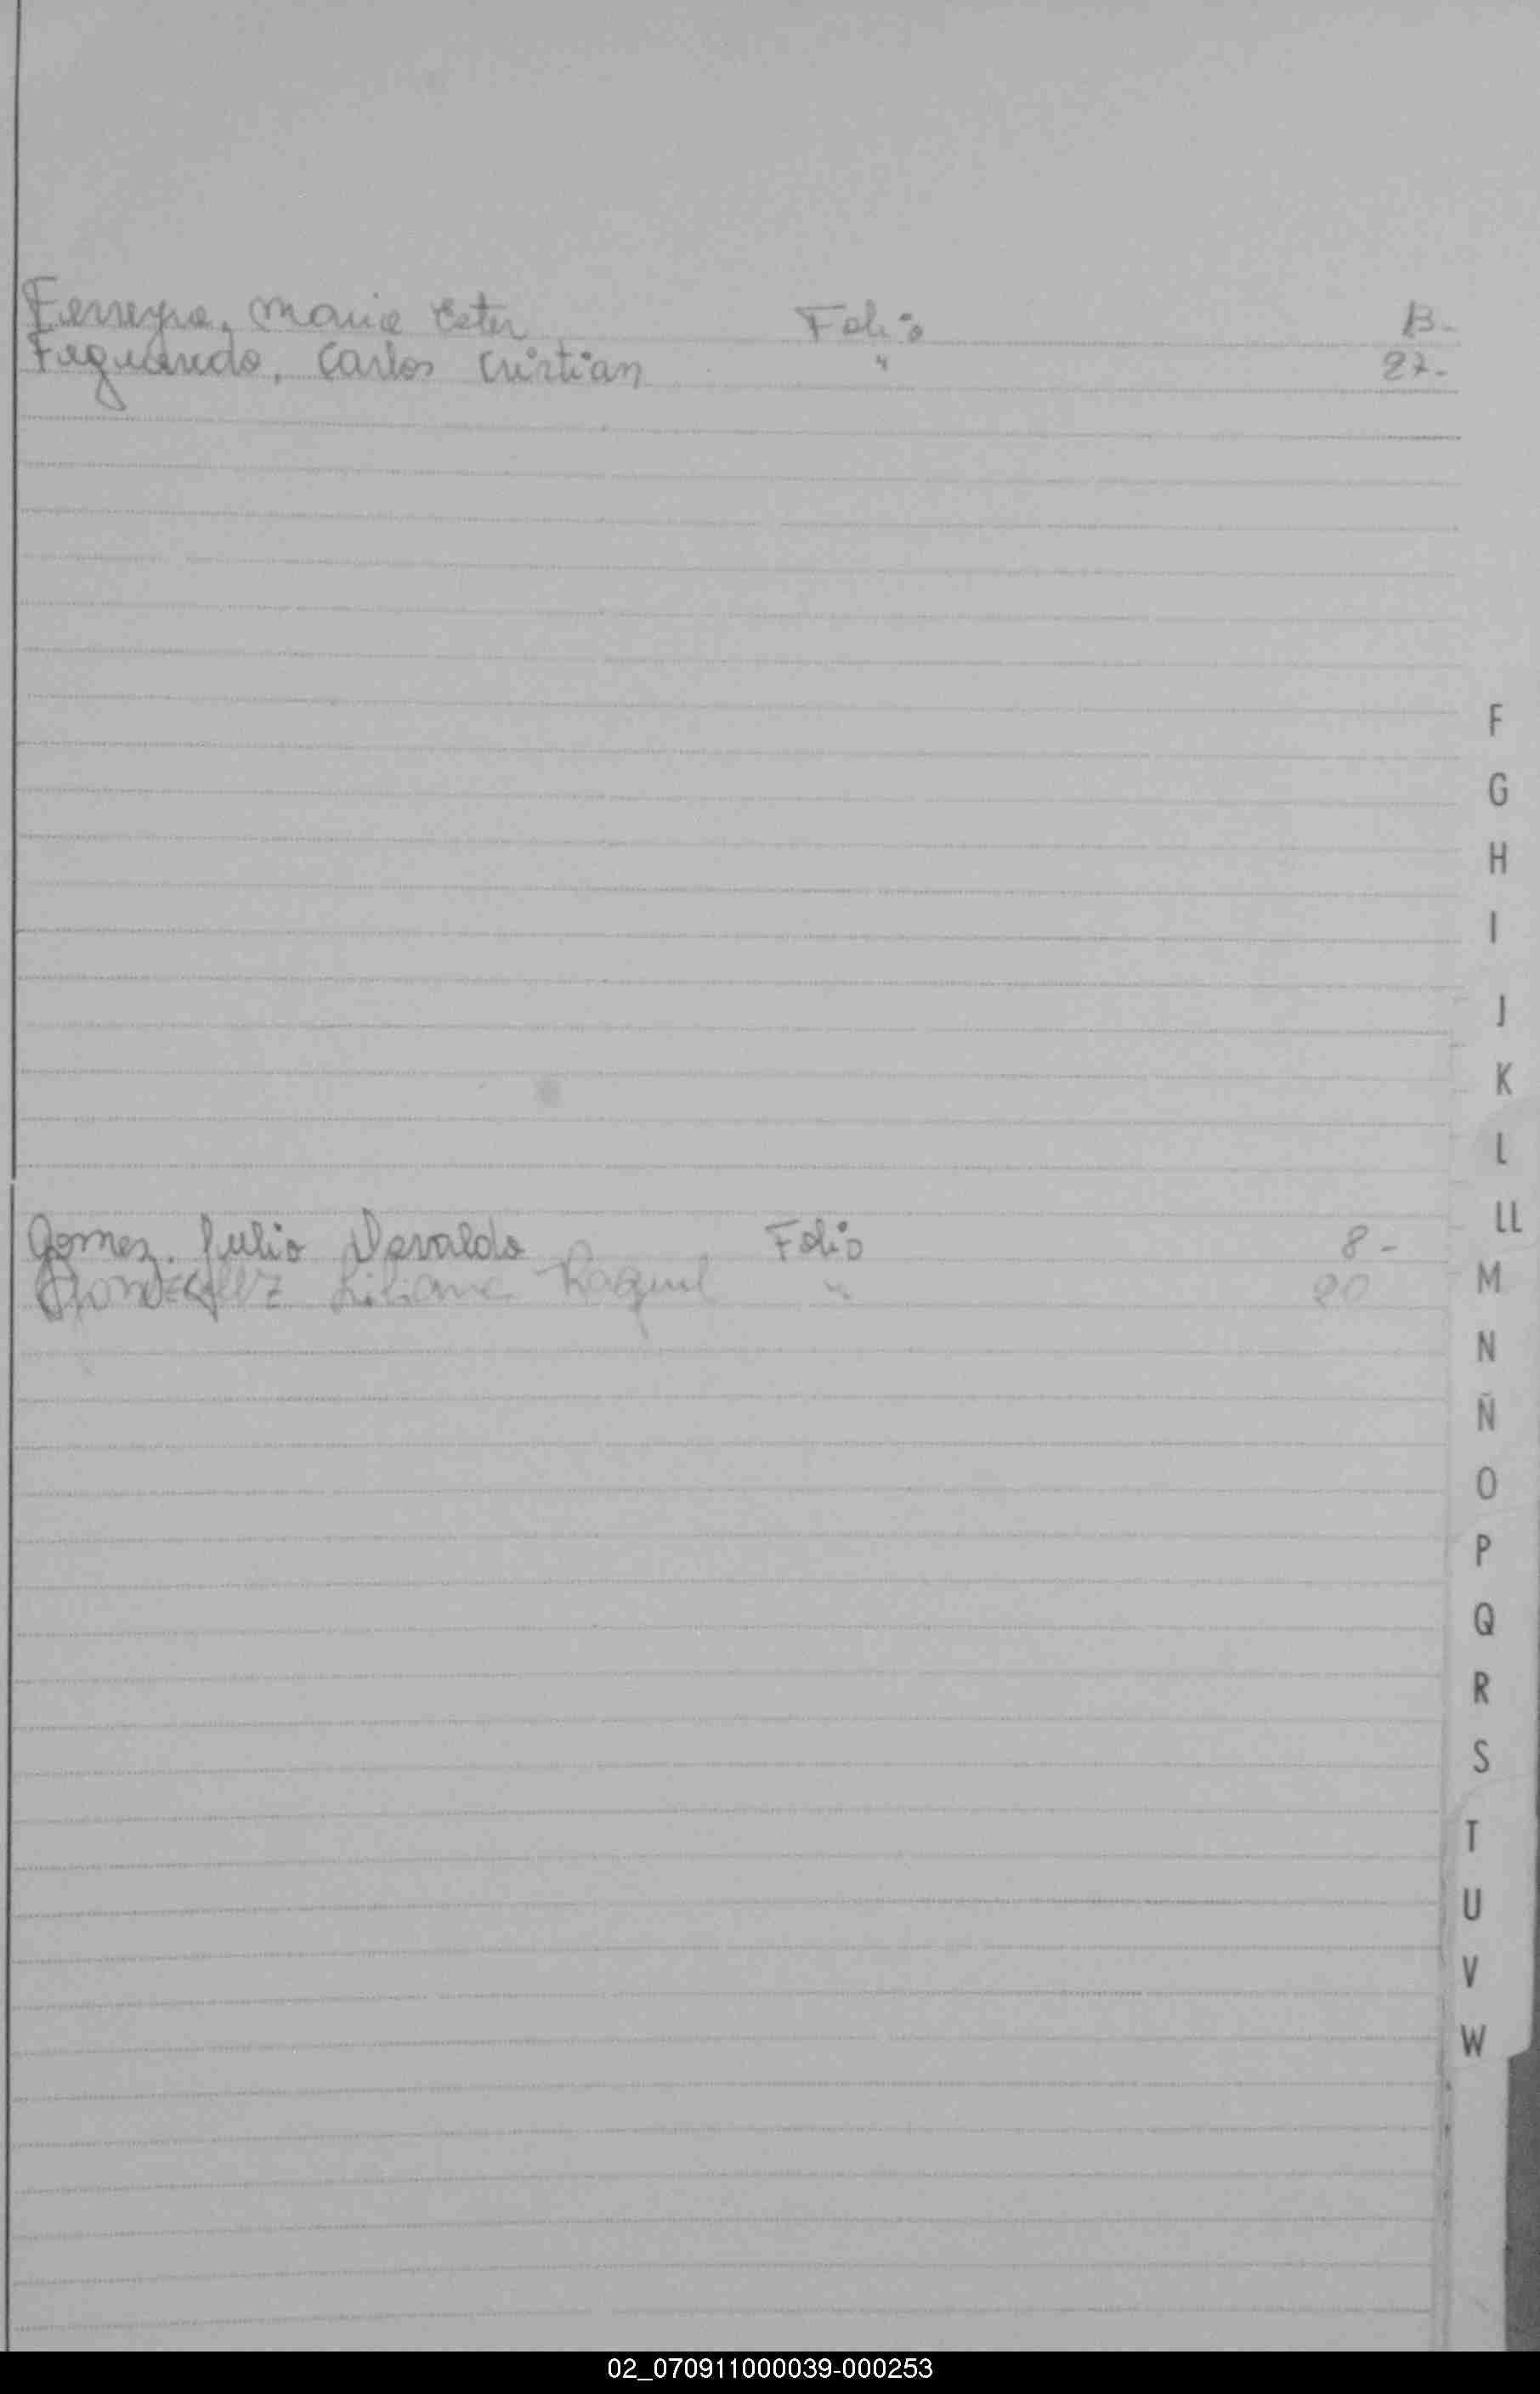 Ferreyra, Maria Ester Folio 13-
Carlos Cristian " 27-
F
G
H
I
J
K
L
LL
Gomez. Julio Osvaldo Folio 8-
Gonzalez Liliana Raquel " 20
M
N
Ñ
O
P
Q
R
S
T
U
V
W
02_070911000039-000253